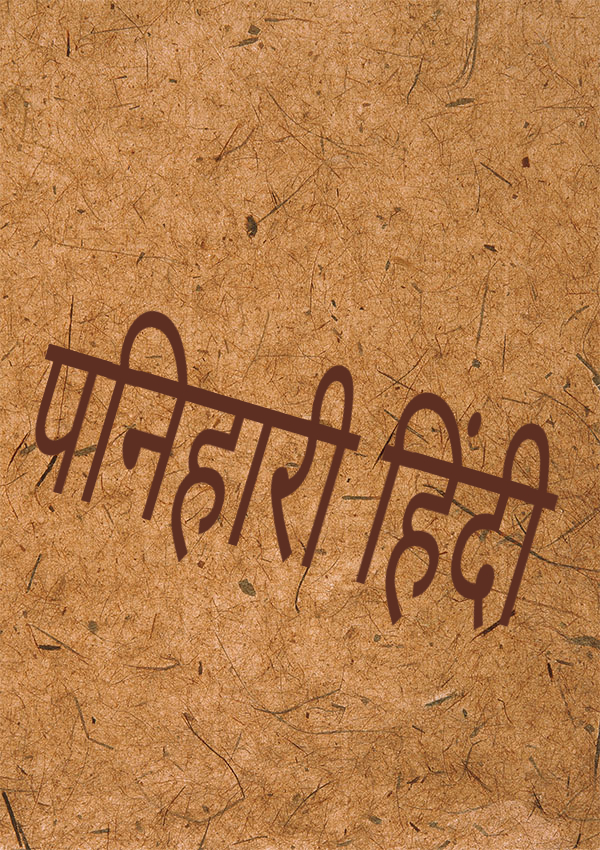 पनिहारी हिंदी